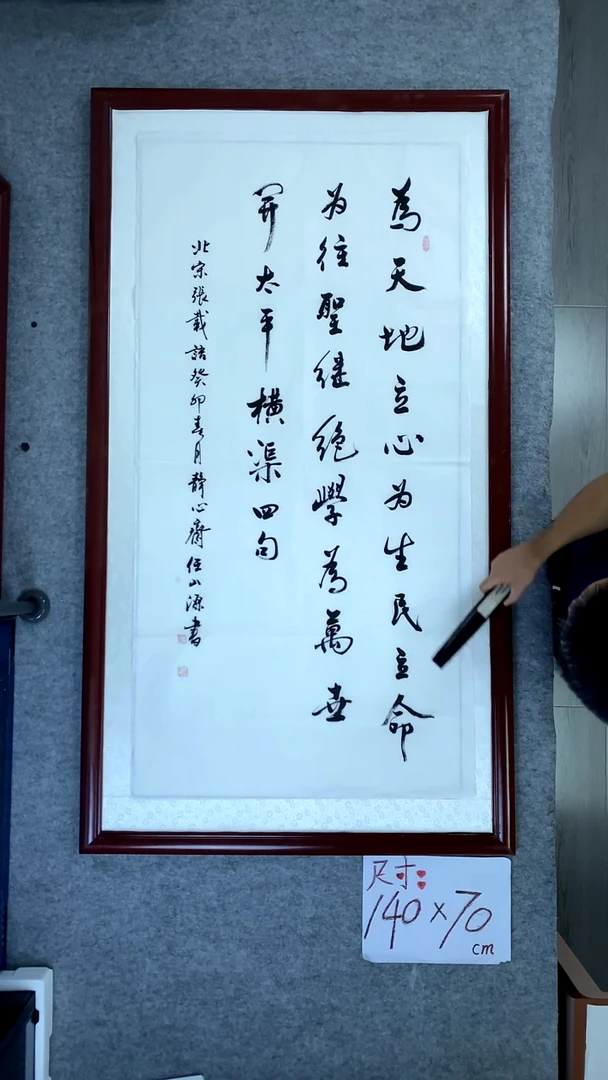 為天地立心为生民立命
为往聖继绝學為萬世
開太平横渠四句
北宗張載語癸卯春月靜心齋任山源書
尺寸:
140×70
cm